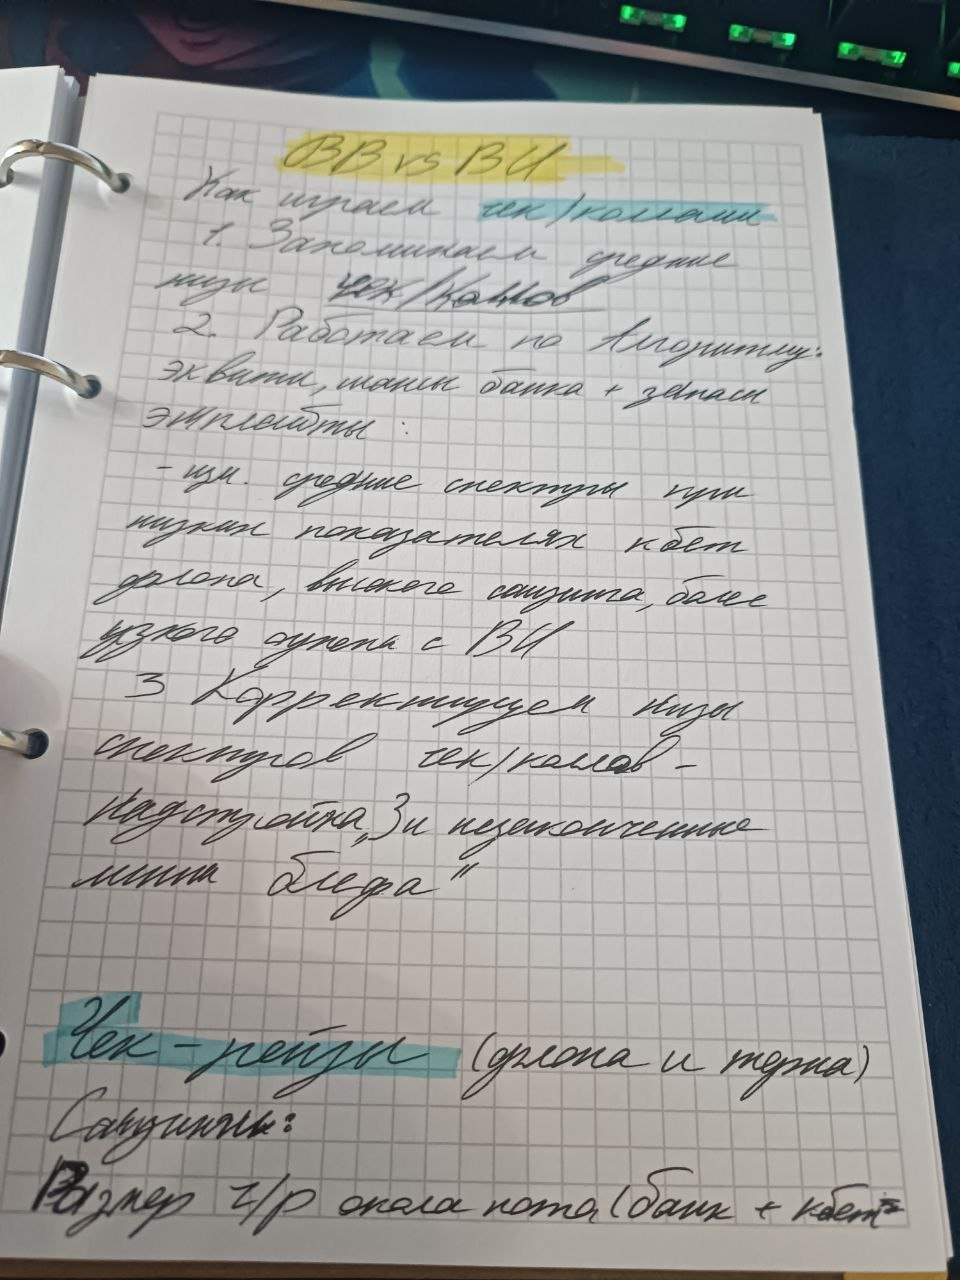 BB vs BU
Как играем чек/коллами
1. Запоминаем средние
низы чек/коллов
2. Работаем по Алгоритму:
эквити, шансы банка +
эксплойты:
- изм. средние спектры при
низких показателях кбет
флопа, высокого сайзинга, более
узкого опена с BU
3 Корректируем низы
спектров чек/коллов -
надстройка „3и незаконченные
линии блефа"
Чек-рейзы (флопа и терна)
Сайзинги:
Размер ч/р около пота (банк + кбет=